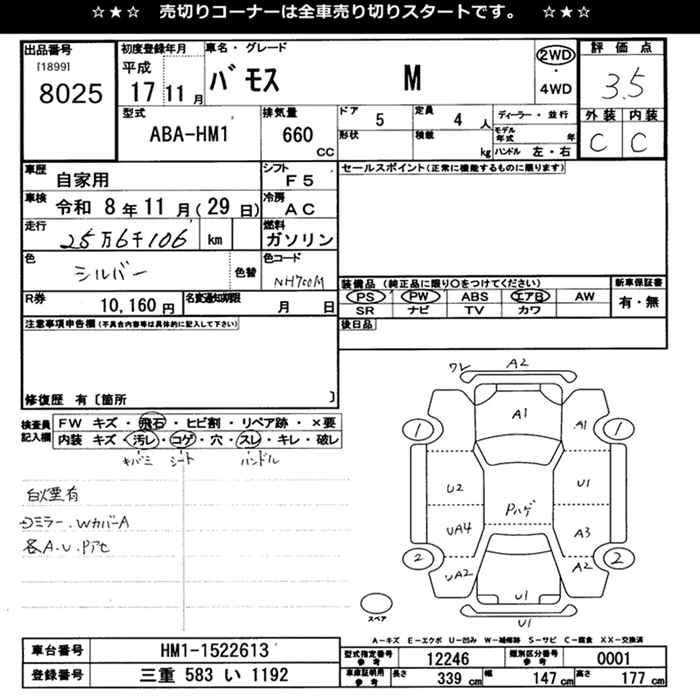 ☆★☆ 売切りコーナーは全車売り切りスタートです。 ☆★☆
出品番号
[1899]
8025
初度登録年月
平成
17 11 月
車名・グレード
バモス M
2WD
・
4WD
評価点
3.5
外装 内装
C C
型式
ABA-HM1
排気量
660
CC
ドア 5
形状
定員 4 人
積載 kg
ディーラー・並行
モデル年式 年
ハンドル 左・右
車歴
自家用
シフト
F5
車検
令和 8 年 11 月 (29 日)
冷房
AC
走行
25万6千106 km
燃料
ガソリン
色
シルバー
色替
色コード
NH700M
R券
10,160 円
名変通知期限
月 日
セールスポイント(正常に機能するものに限ります)
装備品 (純正品に限り○をつけてください)
PS PW ABS エアB AW
SR ナビ TV カワ
新車保証書
有・無
後日品
注意事項申告欄(不具合内容等は具体的に記入して下さい)
修復歴 有〔箇所 〕
検査員記入欄
FW キズ・飛石・ヒビ割・リペア跡・×要
内装 キズ・汚レ・コゲ・穴・スレ・キレ・破レ
キバミ シート ハンドル
白煙有
ミラー・WカバーA
各A.U.Pアセ
ワレ A2
A1
A1
1 1
U2 U1
Pハゲ
UA4 A3
2 2
UA2 A2
U1
U1
スペア
A-キズ E-エクボ U-凹み W-補修跡 S-サビ C-腐食 XX-交換済
車台番号
HM1-1522613
登録番号
三重 583 い 1192
型式指定番号
参考
12246
類別区分番号
参考
0001
車庫証明用
参考
長さ 339 cm
幅 147 cm
高さ 177 cm